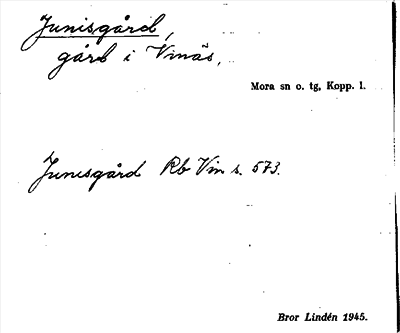 Junisgård,
gård i Vinäs,
Mora sn o. tg, Kopp. l.
Junisgård Rb Vin s. 573.
Bror Lindén 1945.